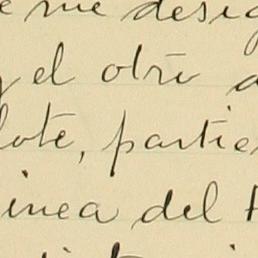 e me desig
y el otro a
lote, partie
linea del